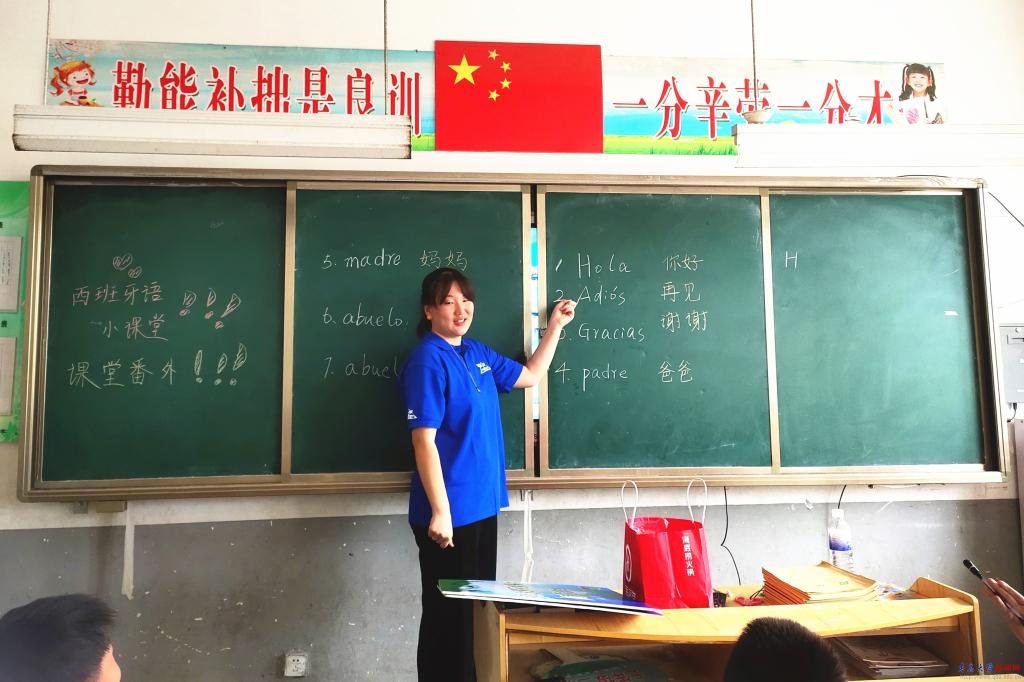 勤能补拙是良训
一分辛苦一分才
西班牙语
小课堂
课堂番外!!!
5. madre 妈妈
6. abuelo.
7. abuel
1 Hola 你好
2. Adiós 再见
3. Gracias 谢谢
4. padre 爸爸
H
海底捞火锅